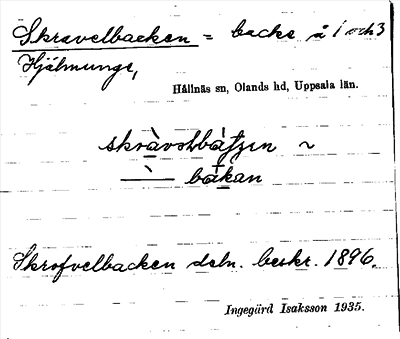 Skravelbacken = backe å 1 och 3
Hjälmunge,
Hållnäs sn, Olands hd, Uppsala län.
~
bákan
Skrofvelbacken deln. beskr. 1896.
Ingegärd Isaksson 1935.